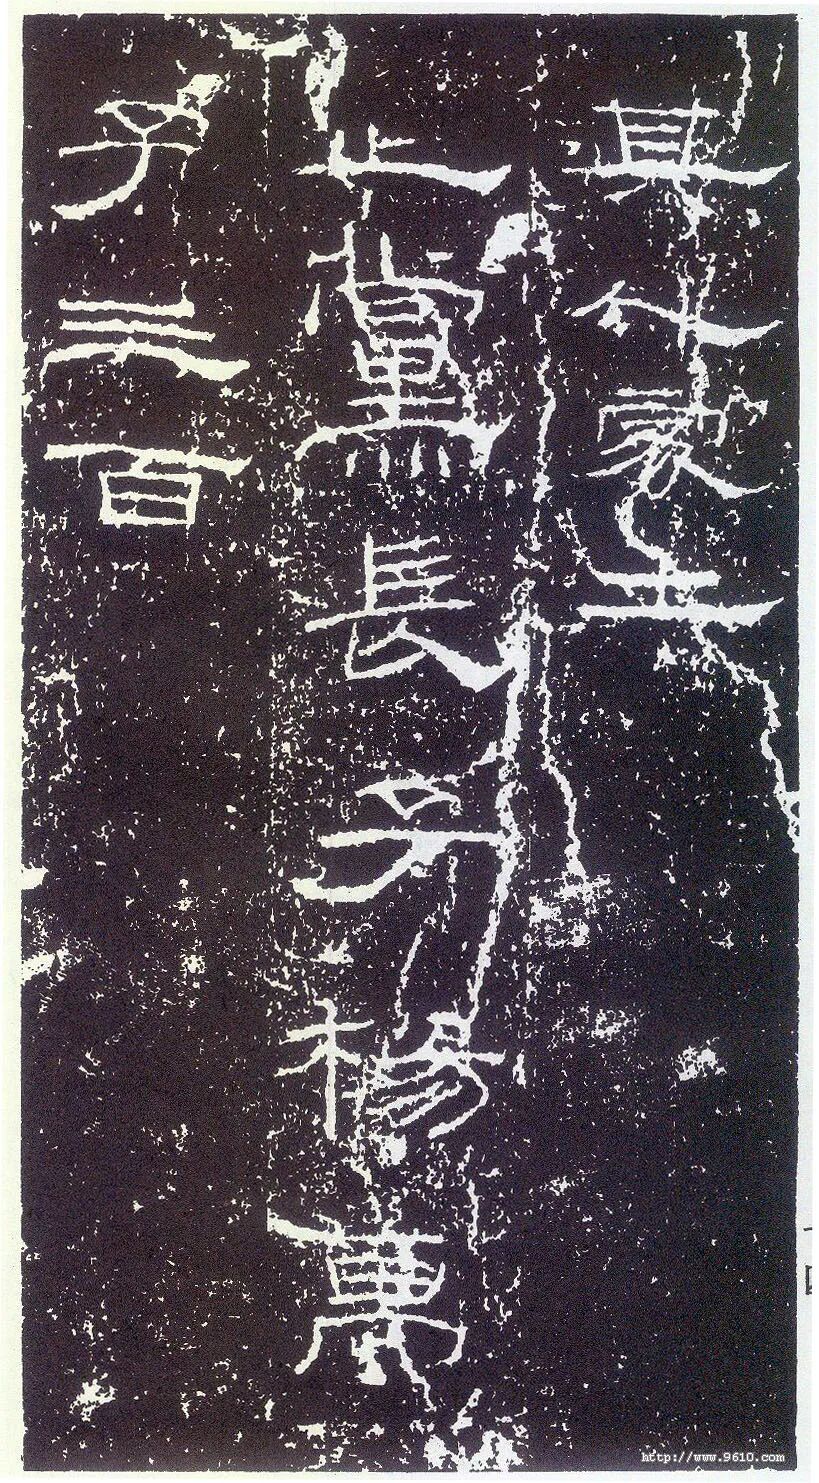 其人處士
上黨長子楊萬
子三百
http://www.9610.com